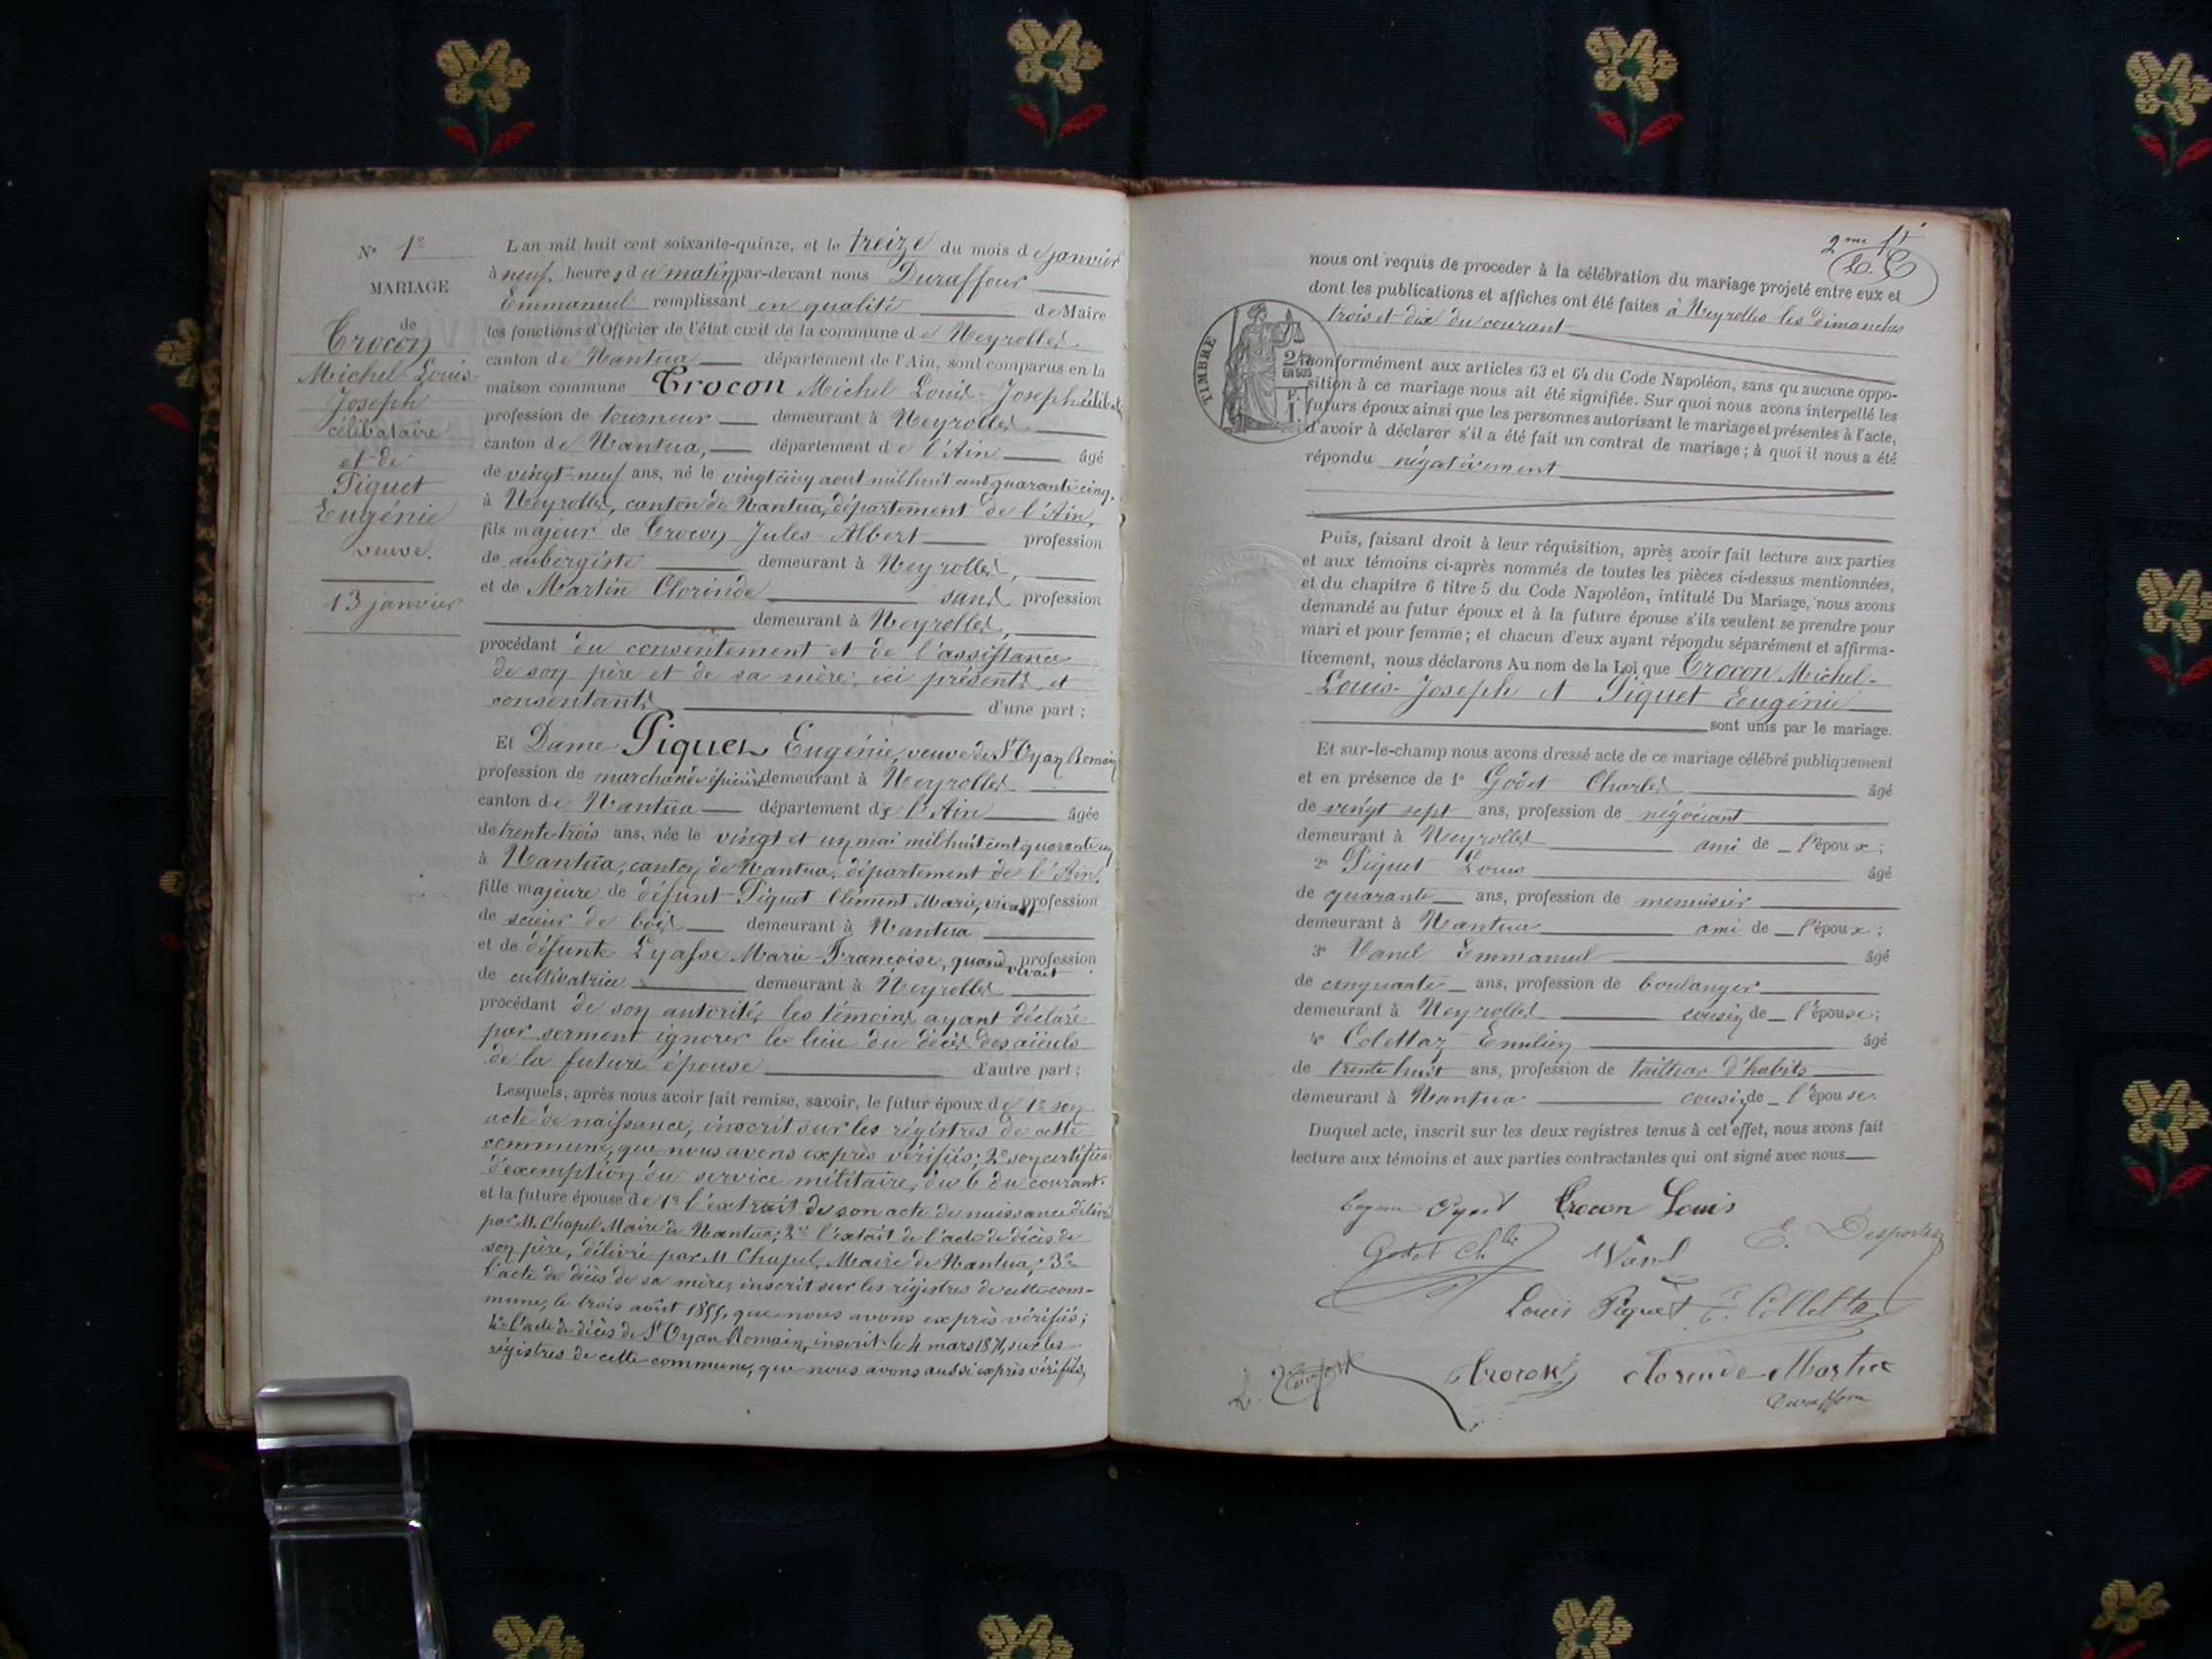 N° 1er
MARIAGE
de
Crocon
Michel-Louis-
Joseph
célibataire
et de
Piquet
Eugénie
veuve.
13 janvier
L'an mil huit cent soixante-quinze, et le treize du mois de janvier
à neuf heures du matin par-devant nous Duraffour
Emmanuel remplissant en qualité de Maire
les fonctions d'Officier de l'état civil de la commune de Neyrolles
canton de Nantua département de l'Ain, sont comparus en la
maison commune Crocon Michel Louis-Joseph
profession de tourneur demeurant à Neyrolles
canton de Nantua, département de l'Ain âgé
de vingt-neuf ans, né le vingt cinq aout mil huit cent quarante cinq.
à Neyrolles, canton de Nantua, département de l'Ain,
fils majeur de Crocon Jules Albert profession
de aubergiste demeurant à Neyrolles,
et de Martin Clorinde sans profession
demeurant à Neyrolles,
procédant du consentement et de l'assistance
de son père et de sa mère, ici présents et
consentants d'une part ;
Et Dame Piquet Eugénie, veuve de St Oyan Romain
profession de marchande épicière demeurant à Neyrolles
canton de Nantua département de l'Ain âgée
de trente-trois ans, née le vingt et un mai mil huit cent quarante un
à Nantua, canton de Nantua, département de l'Ain,
fille majeure de défunt Piquet Clément Marie, vivant profession
de scieur de bois demeurant à Nantua
et de défunte Lyasse Marie-Françoise, quand vivait profession
de cultivatrice demeurant à Neyrolles
procédant de son autorité, les témoins ayant déclaré
par serment ignorer le lieu du décès des aïeuls
de la future épouse d'autre part ;
Lesquels, après nous avoir fait remise, savoir, le futur époux de 1° son
acte de naissance, inscrit sur les régistres de cette
commune, que nous avons exprès vérifiés; 2° son certificat
d'exemption du service militaire, du 6 du courant.
et la future épouse de 1° l'extrait de son acte de naissance délivré
par M. Chapel Maire de Nantua; 2° l'extait de l'acte de décès de
son père, délivré par M Chapel, Maire de Nantua; 3°
l'acte de décès de sa mère, inscrit sur les régistres de cette com-
mune, le trois août 1855, que nous avons exprès vérifiés;
4° l'acte de décès de St Oyan Romain, inscrit le 4 mars 1871, sur les
régistres de cette commune, que nous avons aussi exprès vérifiés,
2me
nous ont requis de procéder à la célébration du mariage projeté entre eux et
dont les publications et affiches ont été faites à Neyrolles les dimanches
trois et dix du courant
TIMBRE
EN SUS
conformément aux articles 63 et 64 du Code Napoléon, sans qu'aucune oppo-
sition à ce mariage nous ait été signifiée. Sur quoi nous avons interpellé les
futurs époux ainsi que les personnes autorisant le mariage et présentes à l'acte,
d'avoir à déclarer s'il a été fait un contrat de mariage ; à quoi il nous a été
répondu négativement
Puis, faisant droit à leur réquisition, après avoir fait lecture aux parties
et aux témoins ci-après nommés de toutes les pièces ci-dessus mentionnées,
et du chapitre 6 titre 5 du Code Napoléon, intitulé Du Mariage, nous avons
demandé au futur époux et à la future épouse s'ils veulent se prendre pour
mari et pour femme ; et chacun d'eux ayant répondu séparément et affirma-
tivement, nous déclarons Au nom de la Loi que Crocon Michel-
Louis-Joseph et Piquet Eugénie
sont unis par le mariage.
Et sur-le-champ nous avons dressé acte de ce mariage célébré publiquement
et en présence de 1° Godet Charles âgé
de vingt sept ans, profession de négociant
demeurant à Neyrolles ami de l'époux ;
2° Piquet Louis âgé
de quarante ans, profession de menuisier
demeurant à Nantua ami de l'époux ;
3° Vanel Emmanuel âgé
de cinquante ans, profession de boulanger
demeurant à Neyrolles cousin de l'épouse ;
4° Colettaz Emilien âgé
de trente huit ans, profession de tailleur d'habits
demeurant à Nantua cousin de l'épouse.
Duquel acte, inscrit sur les deux registres tenus à cet effet, nous avons fait
lecture aux témoins et aux parties contractantes qui ont signé avec nous
Crocon Louis
Godet Ch.
Vanel
E. Desportes
Louis Piquet
E. Collettaz
Crocon
Clorinde Martin
Duraffour